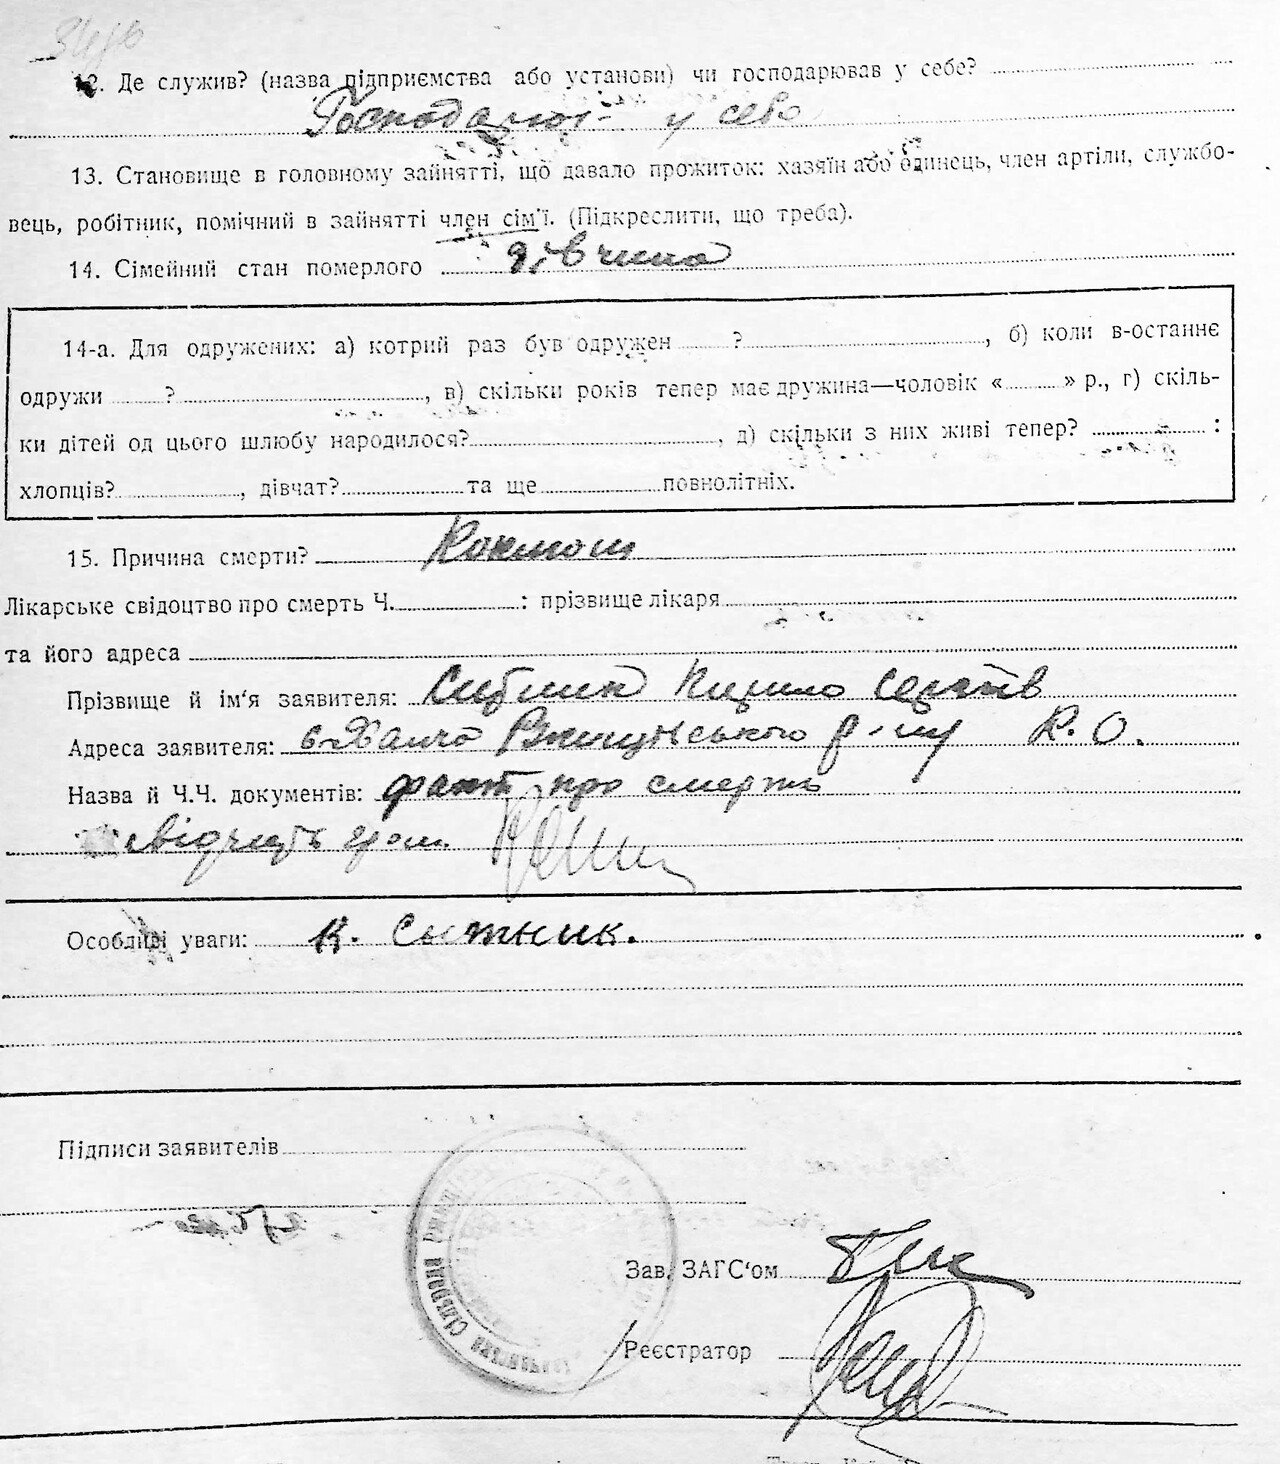 12. Де служив? (назва підприємства або установи) чи господарював у себе?
у себе
13. Становище в головному зайнятті, що давало прожиток: хазяїн або одинець, член артіли, службо-
вець, робітник, помічний в зайнятті член сім'ї. (Підкреслити, що треба).
14. Сімейний стан померлого дівчина
14-а. Для одружених: а) котрий раз був одружен ? , б) коли в-останнє
одружи ? , в) скільки років тепер має дружина—чоловік « » р., г) скіль-
ки дітей од цього шлюбу народилося? , д) скільки з них живі тепер? :
хлопців? , дівчат? та ще повнолітніх.
15. Причина смерти?
Лікарське свідоцтво про смерть Ч. : прізвище лікаря
та його адреса
Прізвище й ім'я заявителя: Кирило
Адреса заявителя: р-ну К. О.
Назва й Ч.Ч. документів: факт про смерть
свідчить гром.
Особливі уваги: К. Ситник.
Підписи заявителів
Зав. ЗАГС'ом
Реєстратор